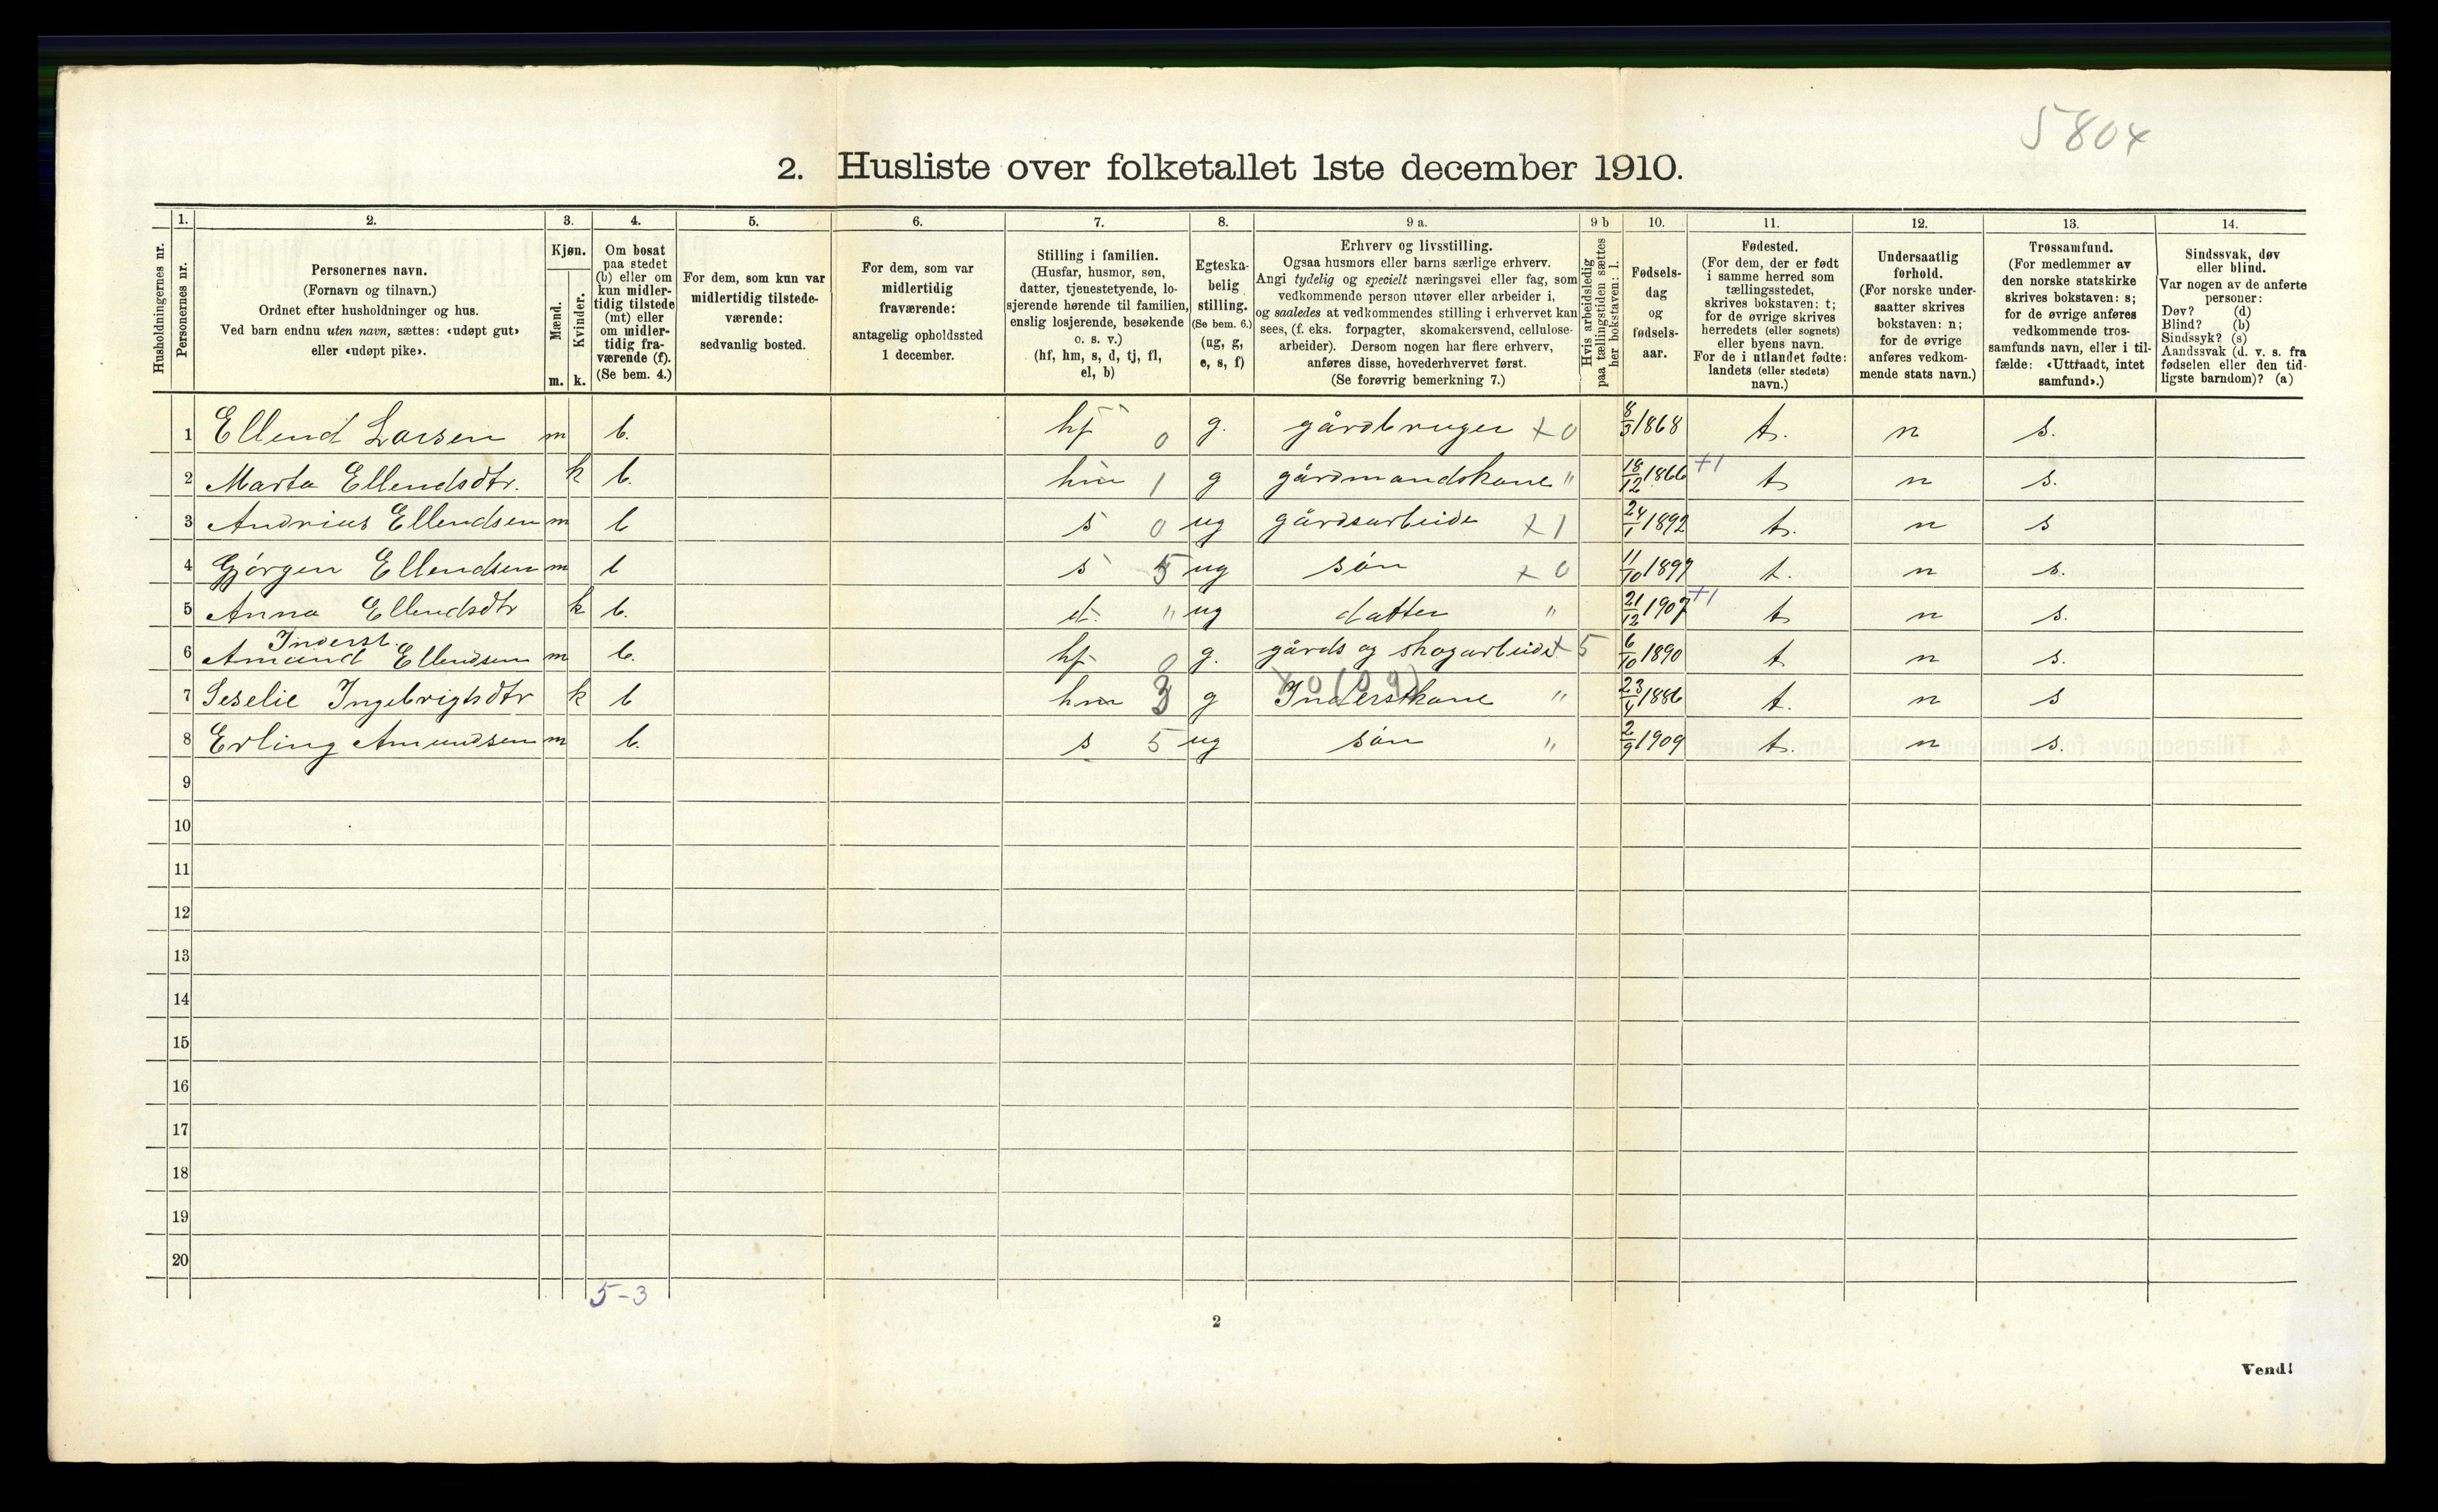 5804
2. Husliste over folketallet 1ste december 1910.
Husholdningernes nr.
1.
Personernes nr.
2.
Personernes navn.
(Fornavn og tilnavn.)
Ordnet efter husholdninger og hus.
Ved barn endnu uten navn, sættes: «udøpt gut»
eller «udøpt pike».
3.
Kjøn.
Mænd.
Kvinder.
m. k.
4.
Om bosat
paa stedet
(b) eller om
kun midler-
tidig tilstede
(mt) eller
om midler-
tidig fra-
værende (f).
(Se bem. 4.)
5.
For dem, som kun var
midlertidig tilstede-
værende:
sedvanlig bosted.
6.
For dem, som var
midlertidig
fraværende:
antagelig opholdssted
1 december.
7.
Stilling i familien.
(Husfar, husmor, søn,
datter, tjenestetyende, lo-
sjerende hørende til familien,
enslig losjerende, besøkende
o. s. v.)
(hf, hm, s, d, tj, fl,
el, b)
8.
Egteska-
belig
stilling.
(Se bem. 6.)
(ug, g,
e, s, f)
9 a.
Erhverv og livsstilling.
Ogsaa husmors eller barns særlige erhverv.
Angi tydelig og specielt næringsvei eller fag, som
vedkommende person utøver eller arbeider i,
og saaledes at vedkommendes stilling i erhvervet kan
sees, (f. eks. forpagter, skomakersvend, cellulose-
arbeider). Dersom nogen har flere erhverv,
anføres disse, hovederhvervet først.
(Se forøvrig bemerkning 7.)
9 b
Hvis arbeidsledig
paa tællingstiden sættes
her bokstaven: l.
10.
Fødsels-
dag
og
fødsels-
aar.
11.
Fødested.
(For dem, der er født
i samme herred som
tællingsstedet,
skrives bokstaven: t;
for de øvrige skrives
herredets (eller sognets)
eller byens navn.
For de i utlandet fødte:
landets (eller stedets)
navn.)
12.
Undersaatlig
forhold.
(For norske under-
saatter skrives
bokstaven: n;
for de øvrige
anføres vedkom-
mende stats navn.)
13.
Trossamfund.
(For medlemmer av
den norske statskirke
skrives bokstaven: s;
for de øvrige anføres
vedkommende tros-
samfunds navn, eller i til-
fælde: «Uttraadt, intet
samfund».)
14.
Sindssvak, døv
eller blind.
Var nogen av de anførte
personer:
Døv? (d)
Blind? (b)
Sindssyk? (s)
Aandssvak (d. v. s. fra
fødselen eller den tid-
ligste barndom)? (a)
1 Ellend Larsen m b. hf 0 g. gårdbruger x 0 8/3 1868 t. n s.
2 Marta Ellendsdtr. k b. hm 1 g gårdmandskone " 18/12 1866 +1 t n s.
3 Andrius Ellendsen m b s 0 ug gårdsarbeide x 1 24/1 1892 t. n s
4 Gjörgen Ellendsen m b s 5 ug sön x 0 11/10 1897 t. n s.
5 Anna Ellendsdtr k b. d. " ug datter " 21/12 1907 +1 t n s.
Inderst.
6 Amund Ellendsen m b. hf 0 g. gårds og skogarbeide x 5 6/10 1890 t n s.
x 0 (09)
7 Seselie Ingebrigtsdtr k b hm 3 g Inderstkone " 23/4 1886 t. n s
8 Erling Amundsen m b. s 5 ug sön " 2/9 1909 t. n s.
9
10
11
12
13
14
15
16
17
18
19
20
5-3
2
Vend!